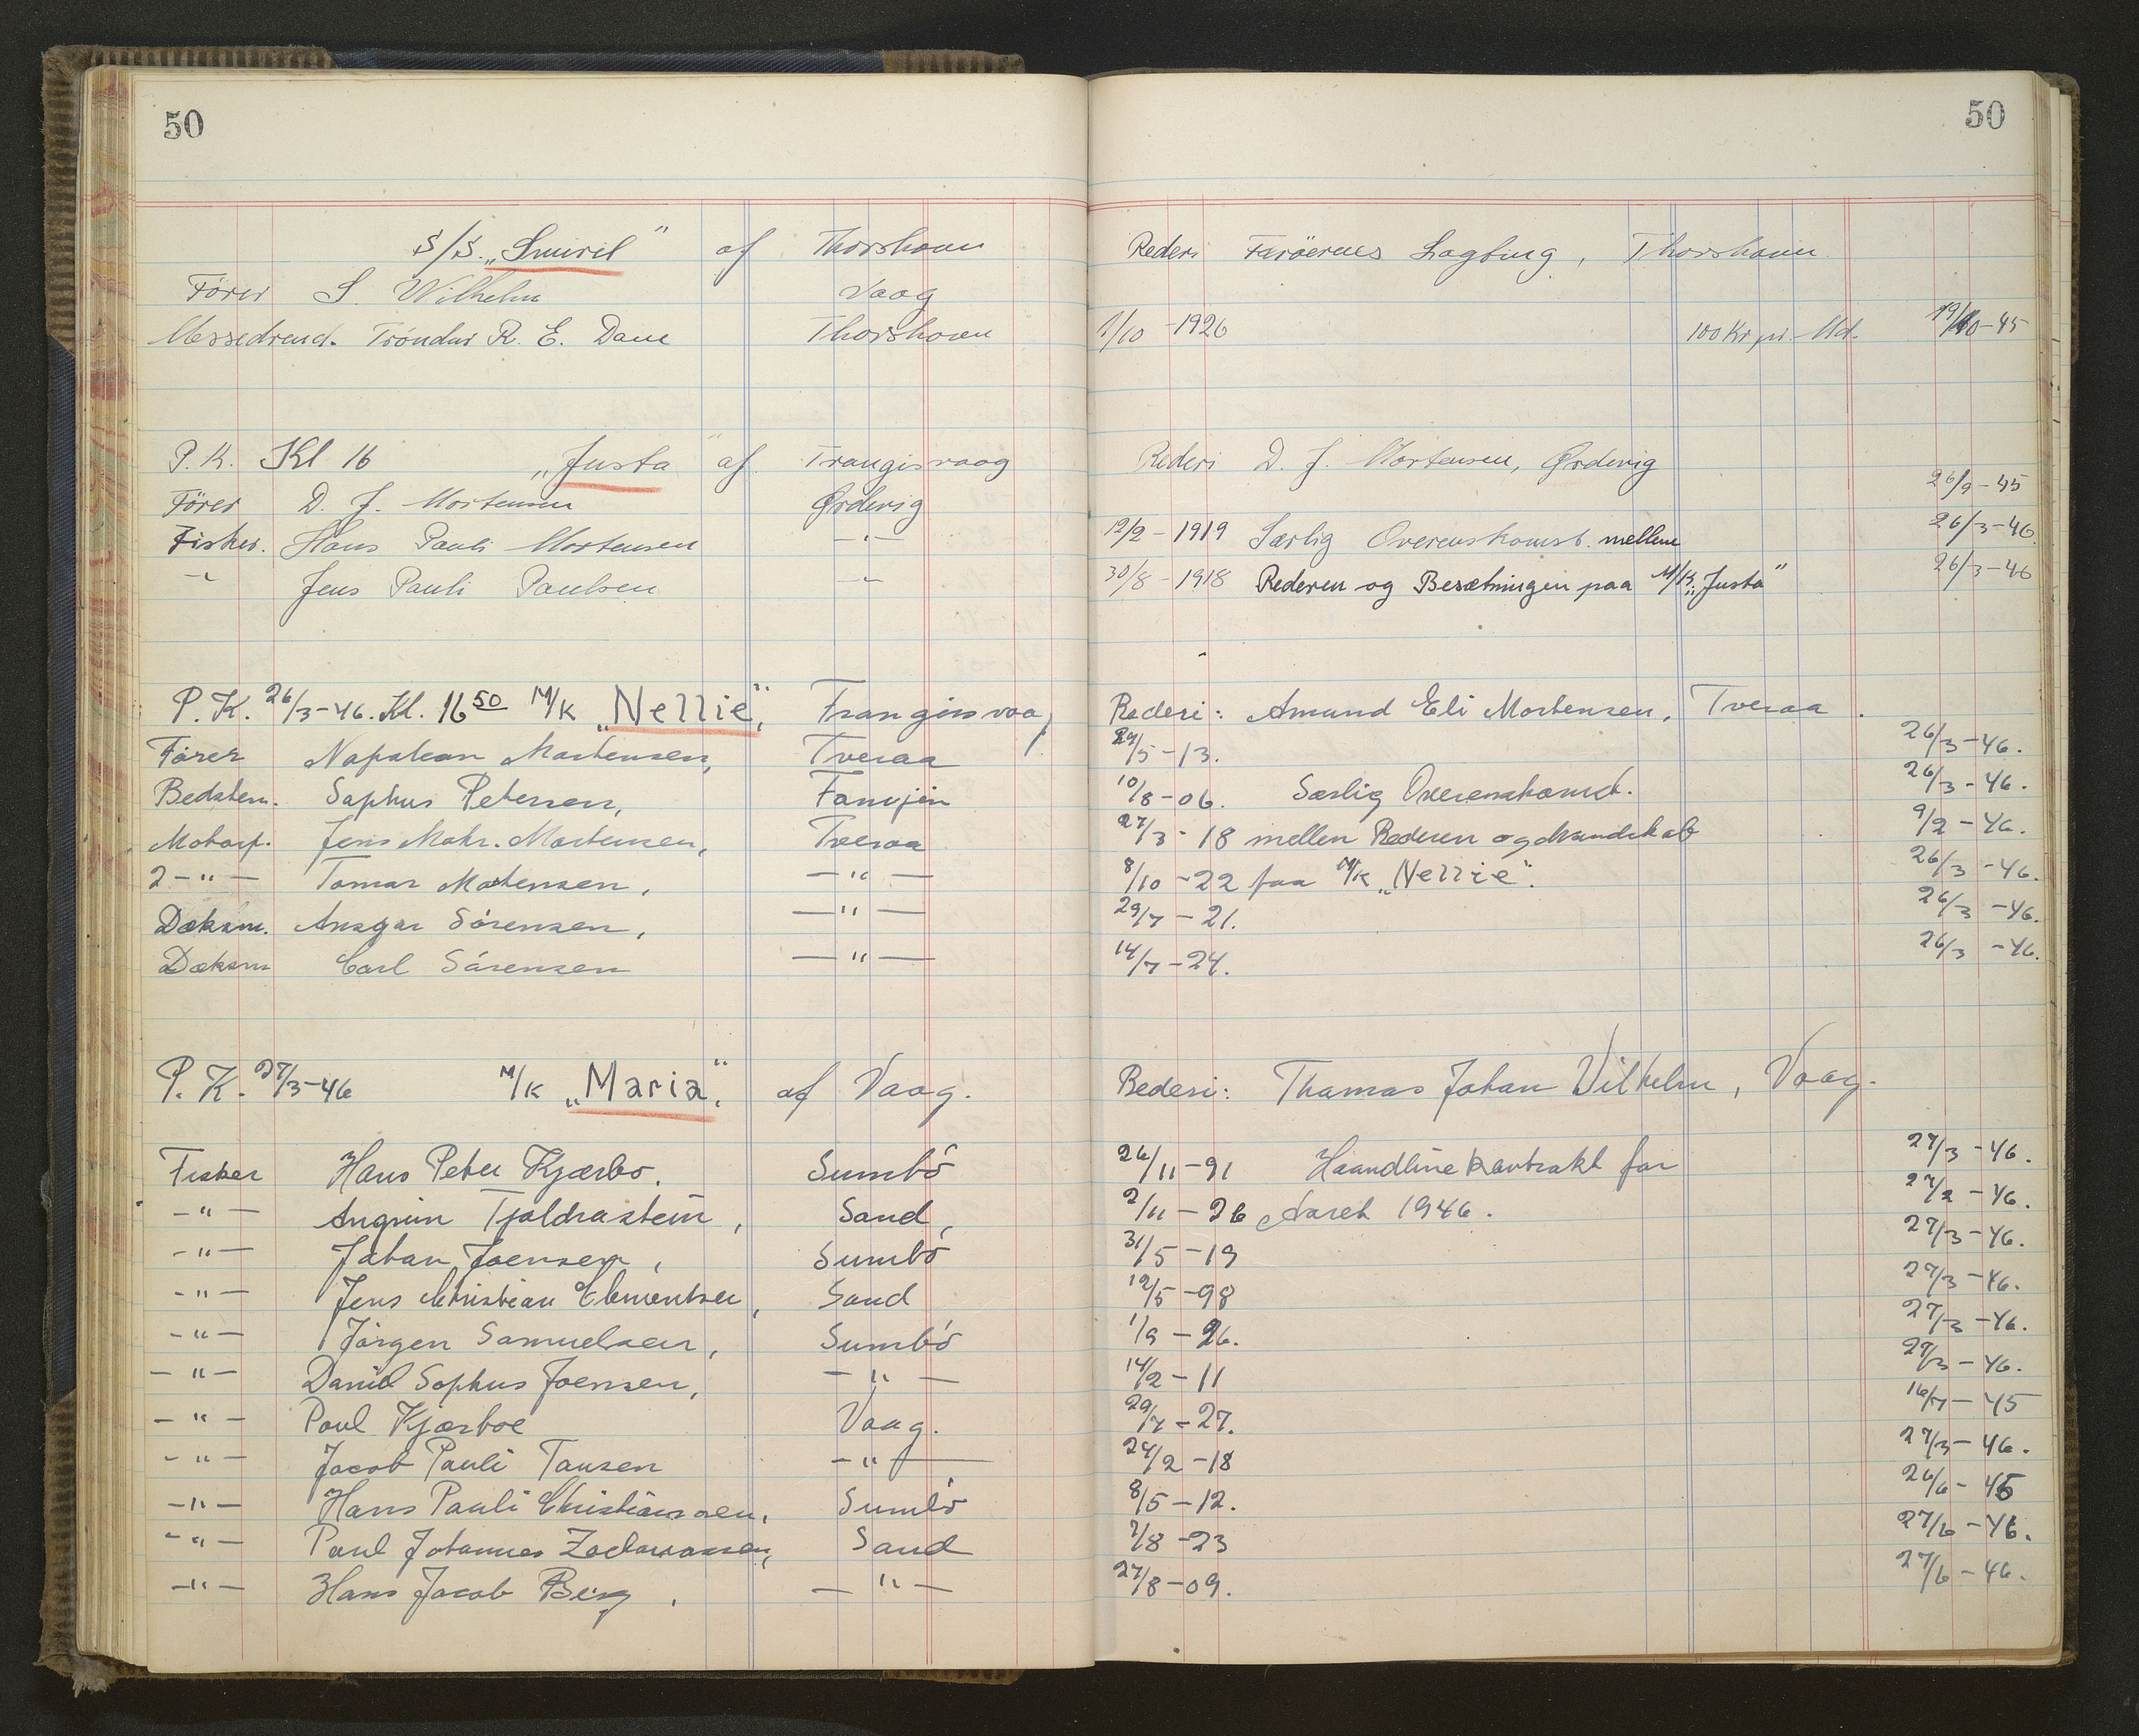 50
50
S/S. „Smiril" af Thorshavn Rederi Færöernes Lagting, Thorshavn
Förer S. Wilhelm Vaag
Messedreng. Tróndur R. E. Dam Thorshavn 1/10 - 1926 100 Kr pr. Md. 19/10-45
P. K. Kl 16 „Justa" af Trangisvaag Rederi D. J. Mortensen, Ørdevig
Förer D. J. Mortensen Ørdevig 26/9-45
Fisker. Hans Pauli Mortensen —"— 12/2-1919 Særlig Overenskomst. mellem 26/3-46
-"- Jens Pauli Poulsen -"- 30/8-1918 Rederen og Besætningen paa M/K. „Justa" 26/3-46
P. K. 26/3-46. Kl. 16 50 M/K „Nellie", Trangisvaag Rederi: Amund Eli Mortensen, Tveraa.
Fører Napoleon Mortensen, Tveraa 29/5-13. 26/3-46.
Bedstem. Sophus Petersen, Famjin 10/8-06. Særlig Overenskomst. 26/3-46.
Motorp. Jens Mohr. Mortensen, Tveraa 27/3-18 mellem Rederen og Mandskab 9/2-46.
2-"- Tomar Mortensen, —"— 8/10-22 paa M/K „Nellie". 26/3-46.
Dæksm. Ansgar Sörensen, —"— 29/7-21. 26/3-46.
Dæksm Carl Sörensen —"— 14/7-24. 26/3-46.
P. K. 27/3-46 M/K „Maria". af Vaag. Rederi: Thomas Johan Vilhelm, Vaag.
Fisker Hans Peter Kjærbo. Sumbö 26/11-91 Haandlinekontrakt for 27/3-46.
-"- Angrim Tjaldrastein, Sand, 2/11-26 Aaret 1946. 27/2-46.
-"- Johan Joensen, Sumbö 31/5-19 27/3-46.
-"- Jens Christian Clementsen, Sand 12/5-98 27/3-46.
-"- Jörgen Samuelsen, Sumbö 1/9-26. 27/3-46.
-"- Daniel Sophus Joensen, -"- 14/2-11 27/3-46.
-"- Poul Kjærboe Vaag. 29/7-27. 16/7-45
-"- Jacob Pauli Tausen -"- 24/2-18 27/3-46.
-"- Hans Pauli Christiansen, Sumbö 8/5-12. 26/6-45
-"- Poul Johannes Zachariasen, Sand 7/8-23 27/6-46.
-"- Hans Jacob Berg, -"- 27/8-09. 27/6-46.